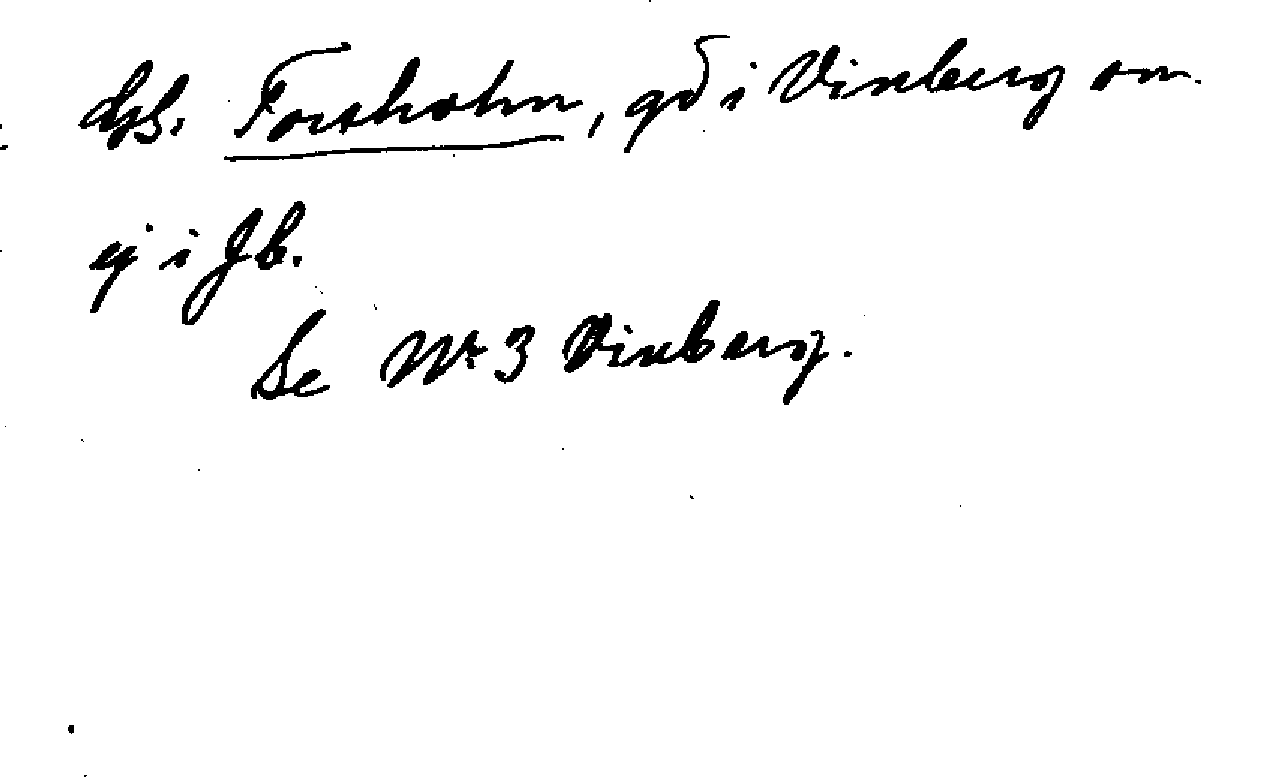 dsb. Forsholm, gd i Vinberg sn.
ej i Jb.
Se Nr 3 Vinberg.